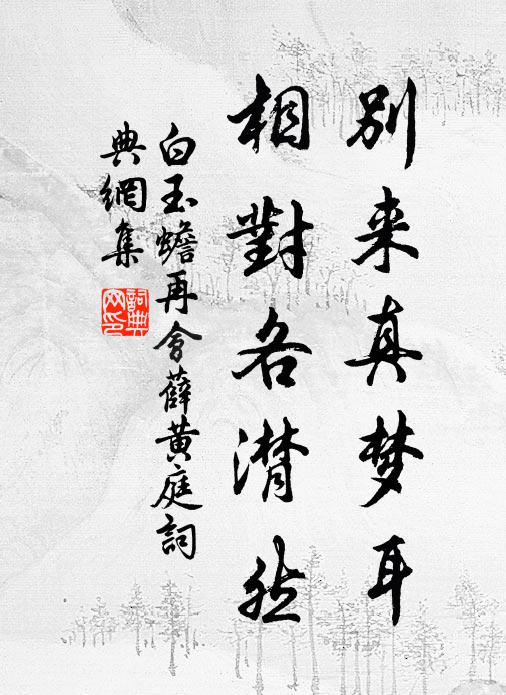 别来真梦耳
相對各潸然
白玉蟾再會薛黄庭詞
典網集
詞典网印